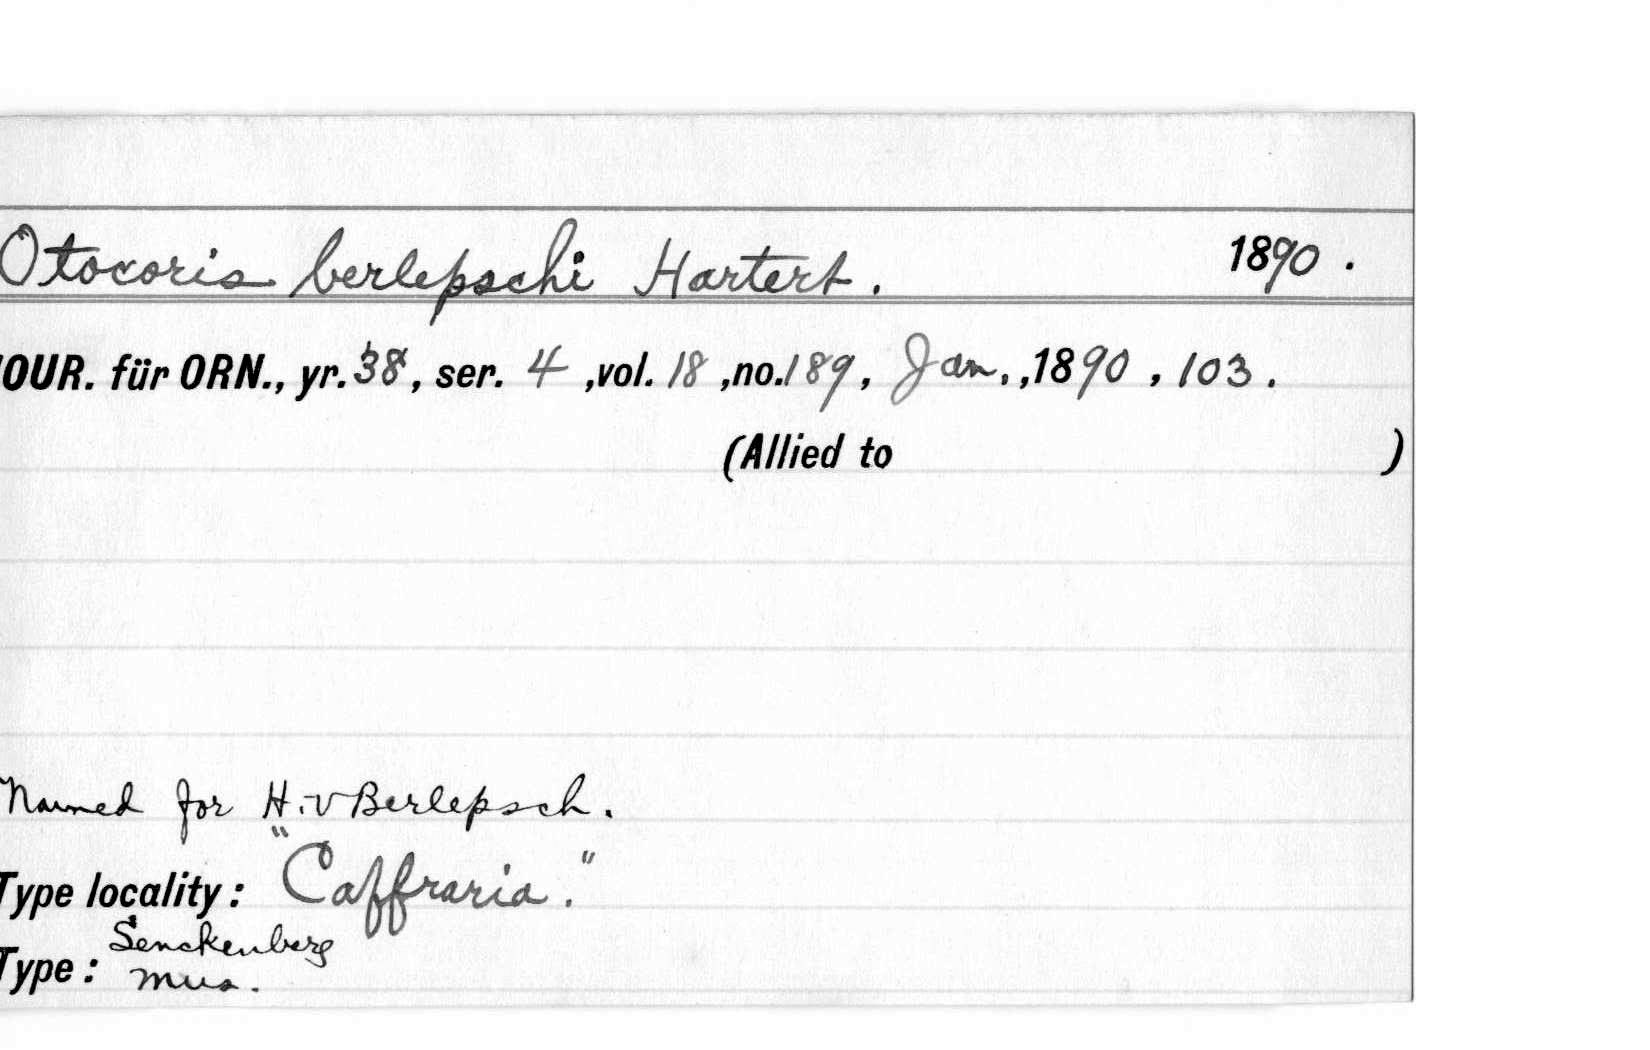 Otocoris berlepschi Hartert. 1890.
JOUR. für ORN., yr. 38, ser. 4, vol. 18, no. 189, Jan., 1890, 103.
(Allied to )
Named for H. v Berlepsch.
Type locality: "Caffraria."
Senckenberg
Type: Mus.